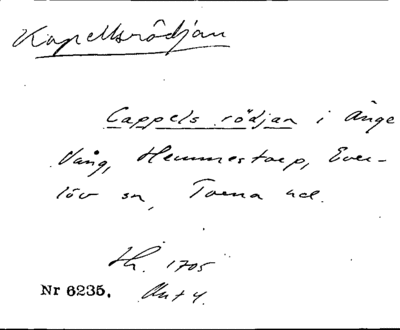 Kapellsrödjan
Cappels rödjan i Änge
Vång, Hemmestorp, Ever-
löv sn, Torna hd.
Lh. 1705
Nr 6235. Ant 4.